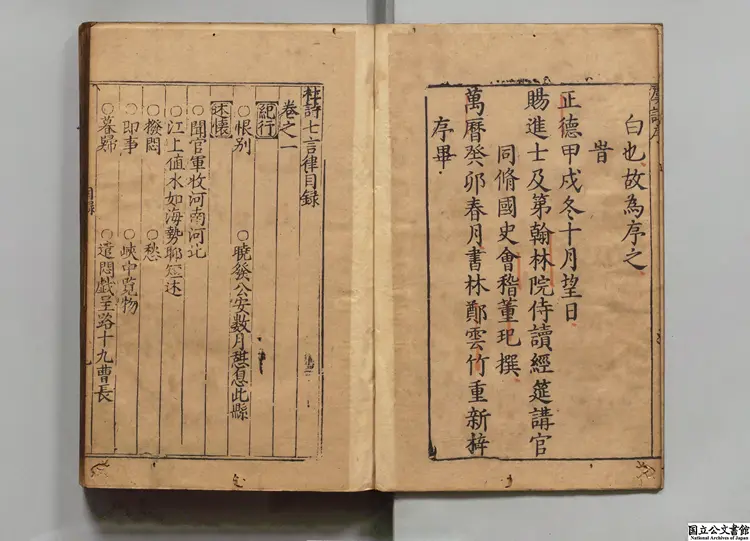 白也故為序之
旹
正德甲戌冬十月望日
賜進士及第翰林院侍讀經筵講官
同脩國史會稽董玘撰
萬曆癸卯春月書林鄭雲竹重新梓
序畢
杜詩七言律目錄
卷之一
紀行
○恨別 ○曉發公安數月憇息此縣
述懷
○聞官軍收河南河北
○江上值水如海勢聊短述
○撥悶 ○愁
○即事 ○峽中覧物
○暮歸 ○遣悶戲呈路十九曹長
国立公文書館
National Archives of Japan